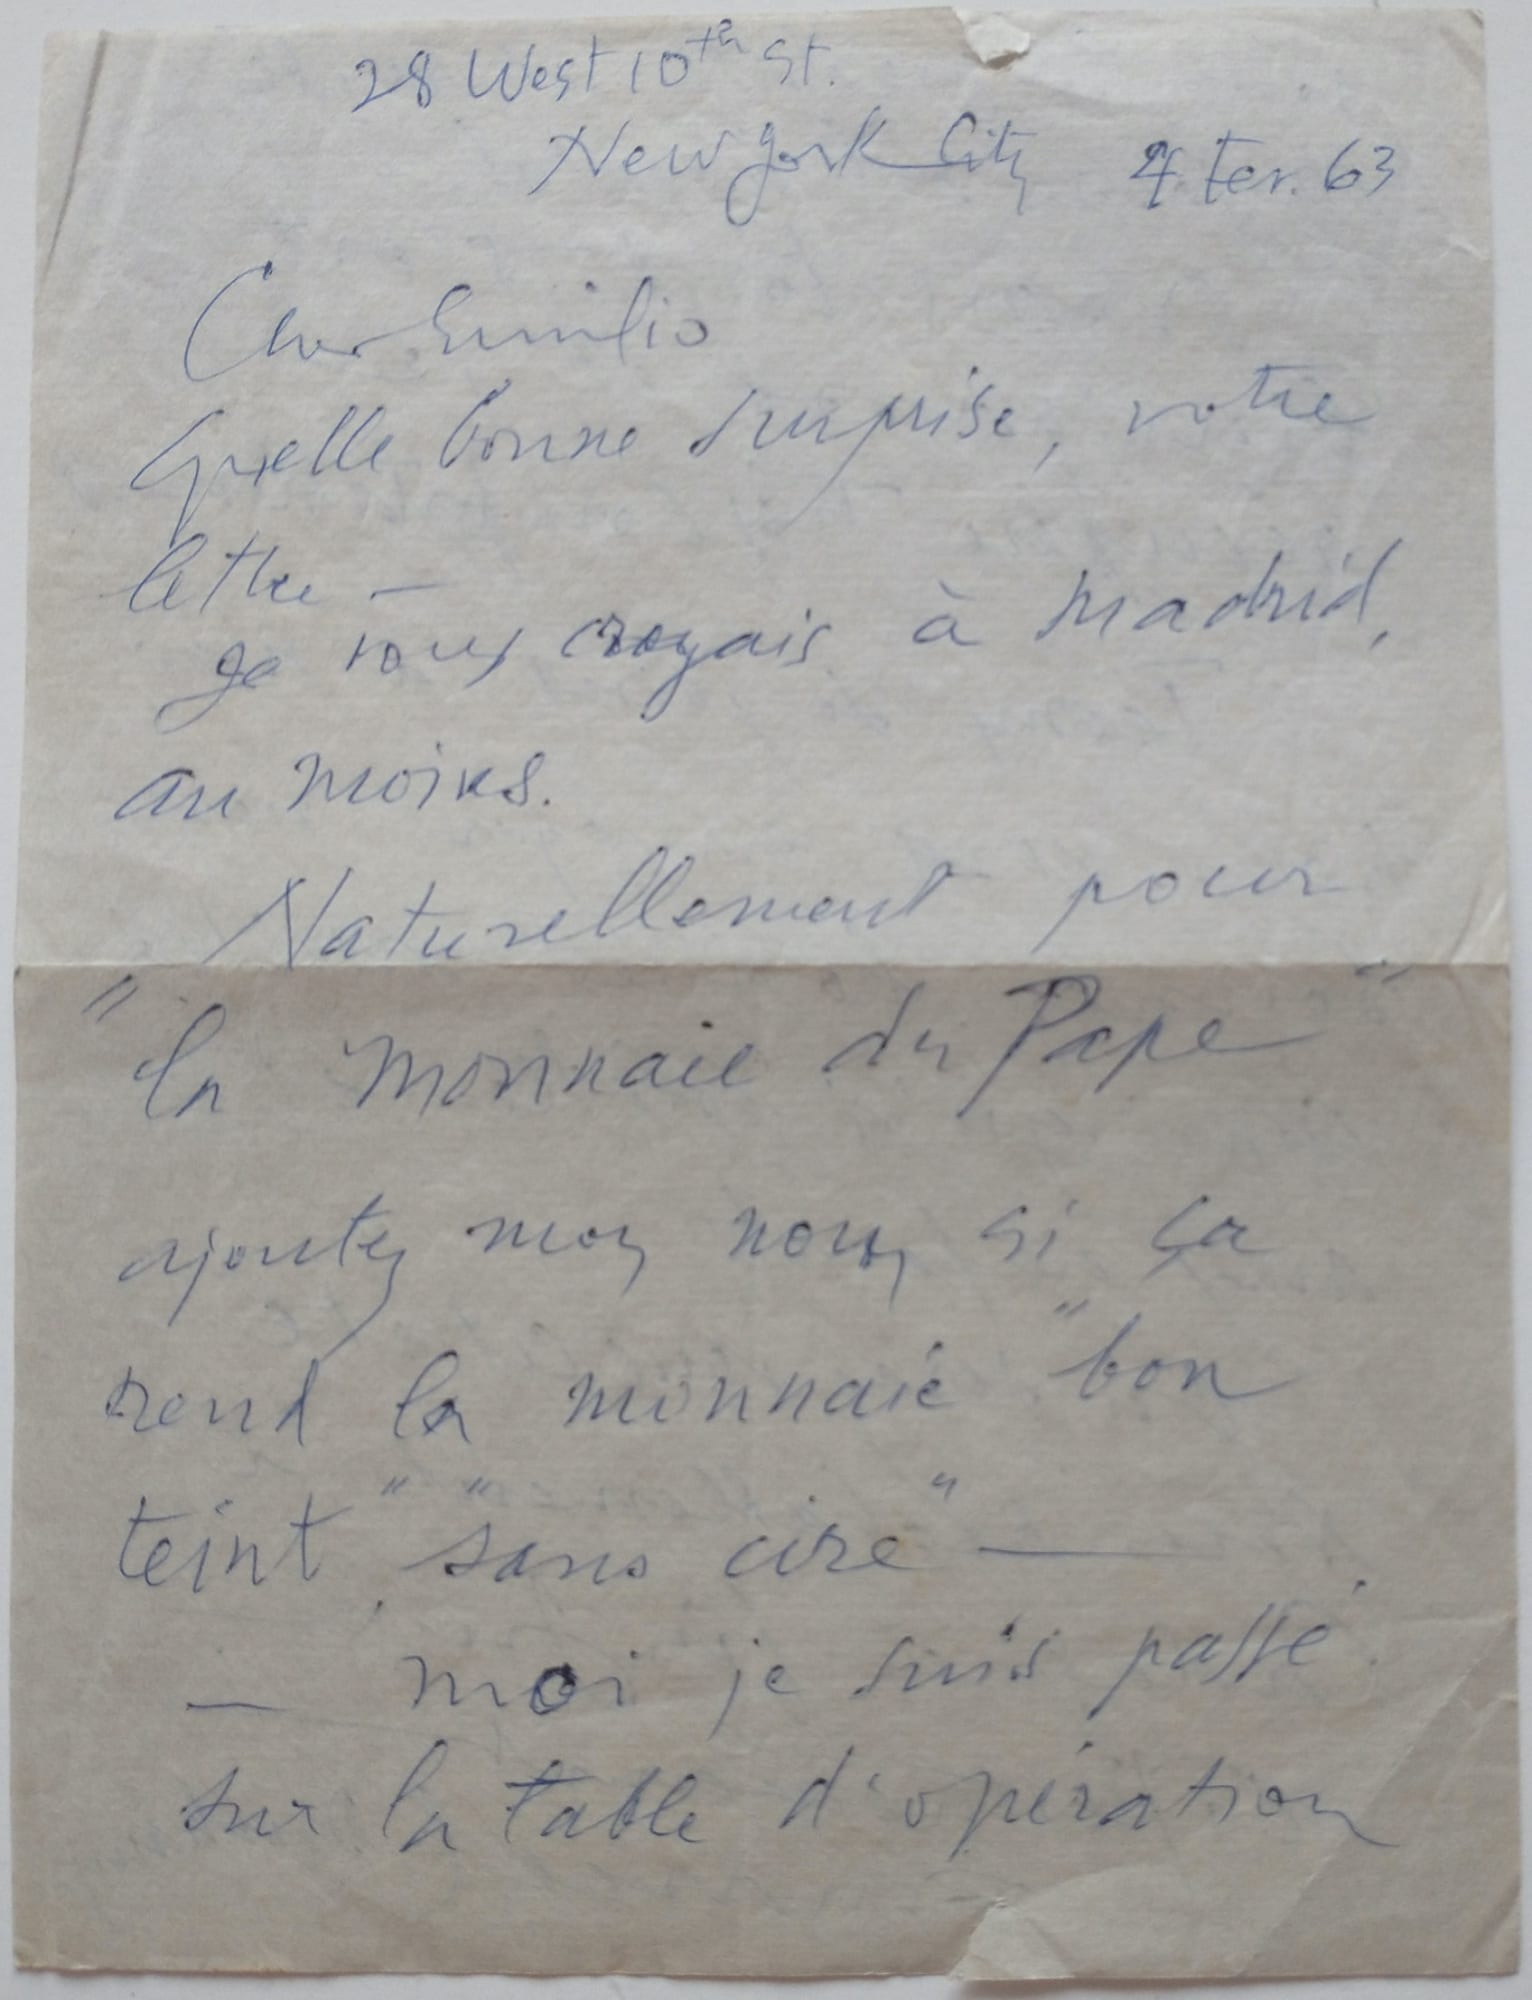 28 West 10th St.
New York City 4 Fev. 63
Cher Emilio
Quelle bonne surprise, votre
lettre —
Je vous croyais à Madrid,
au moins.
Naturellement pour
"la monnaie du Pape"
ajoutez mon nom si ça
rend la monnaie "bon
teint", "sans cire" —
— moi je suis passé
sur la table d'opération